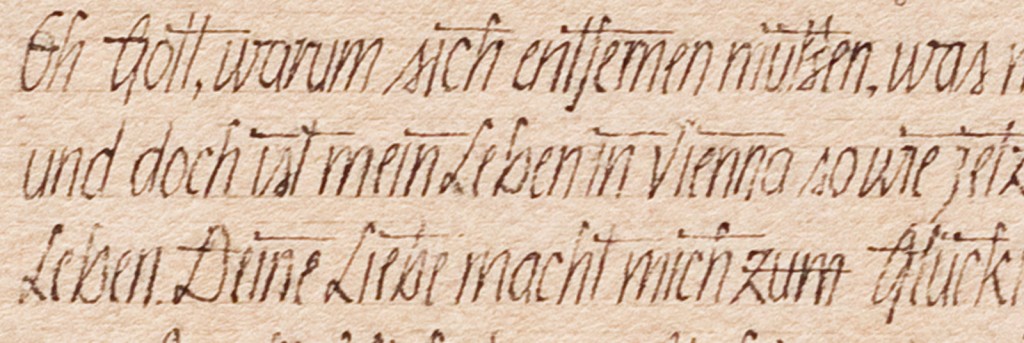 Eh Gott, warum sich entfernen müssen, was
und doch ist mein Leben in Vienna sowie
Leben. Deine Liebe macht mich zum